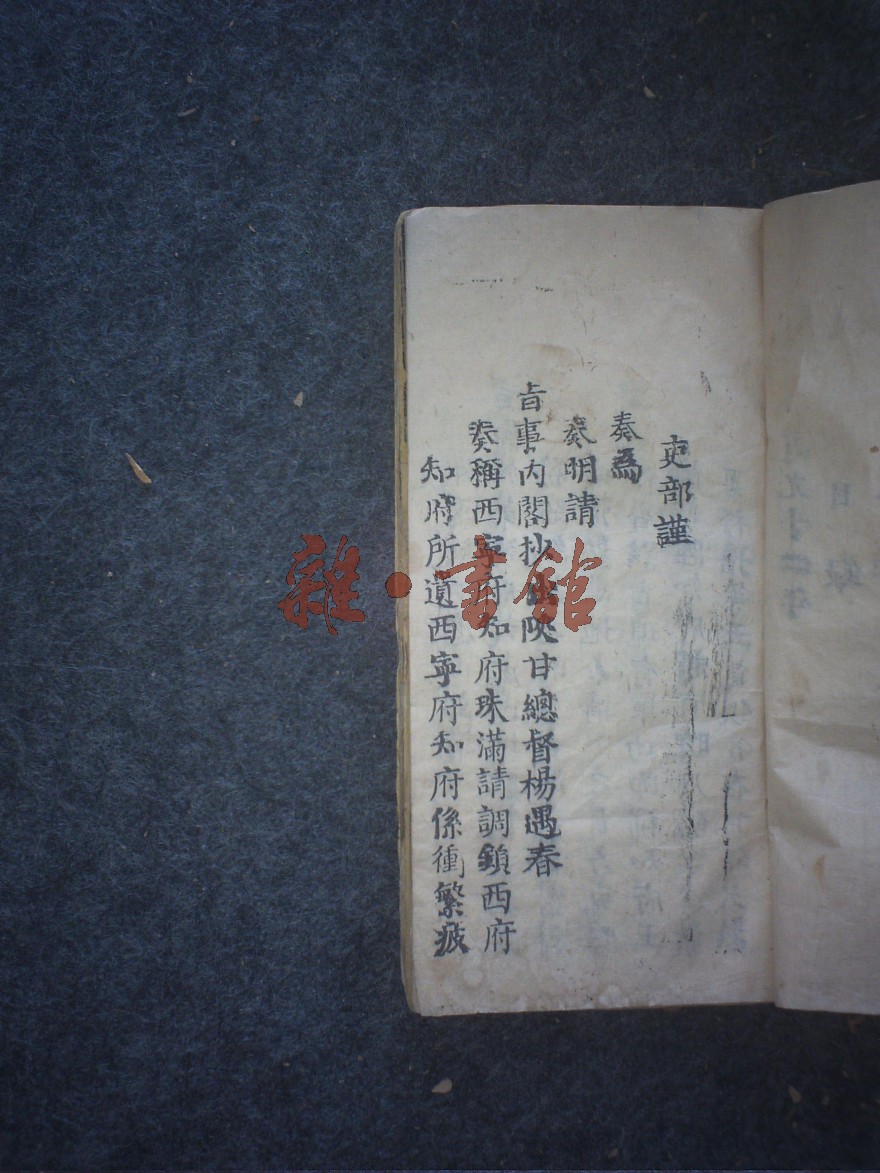 吏部謹
奏為
奏明請
旨事內閣抄出陝甘總督楊遇春
奏稱西寧府知府珠滿請調鎮西府
知府所遺西寧府知府係衝繁疲
雜·書館